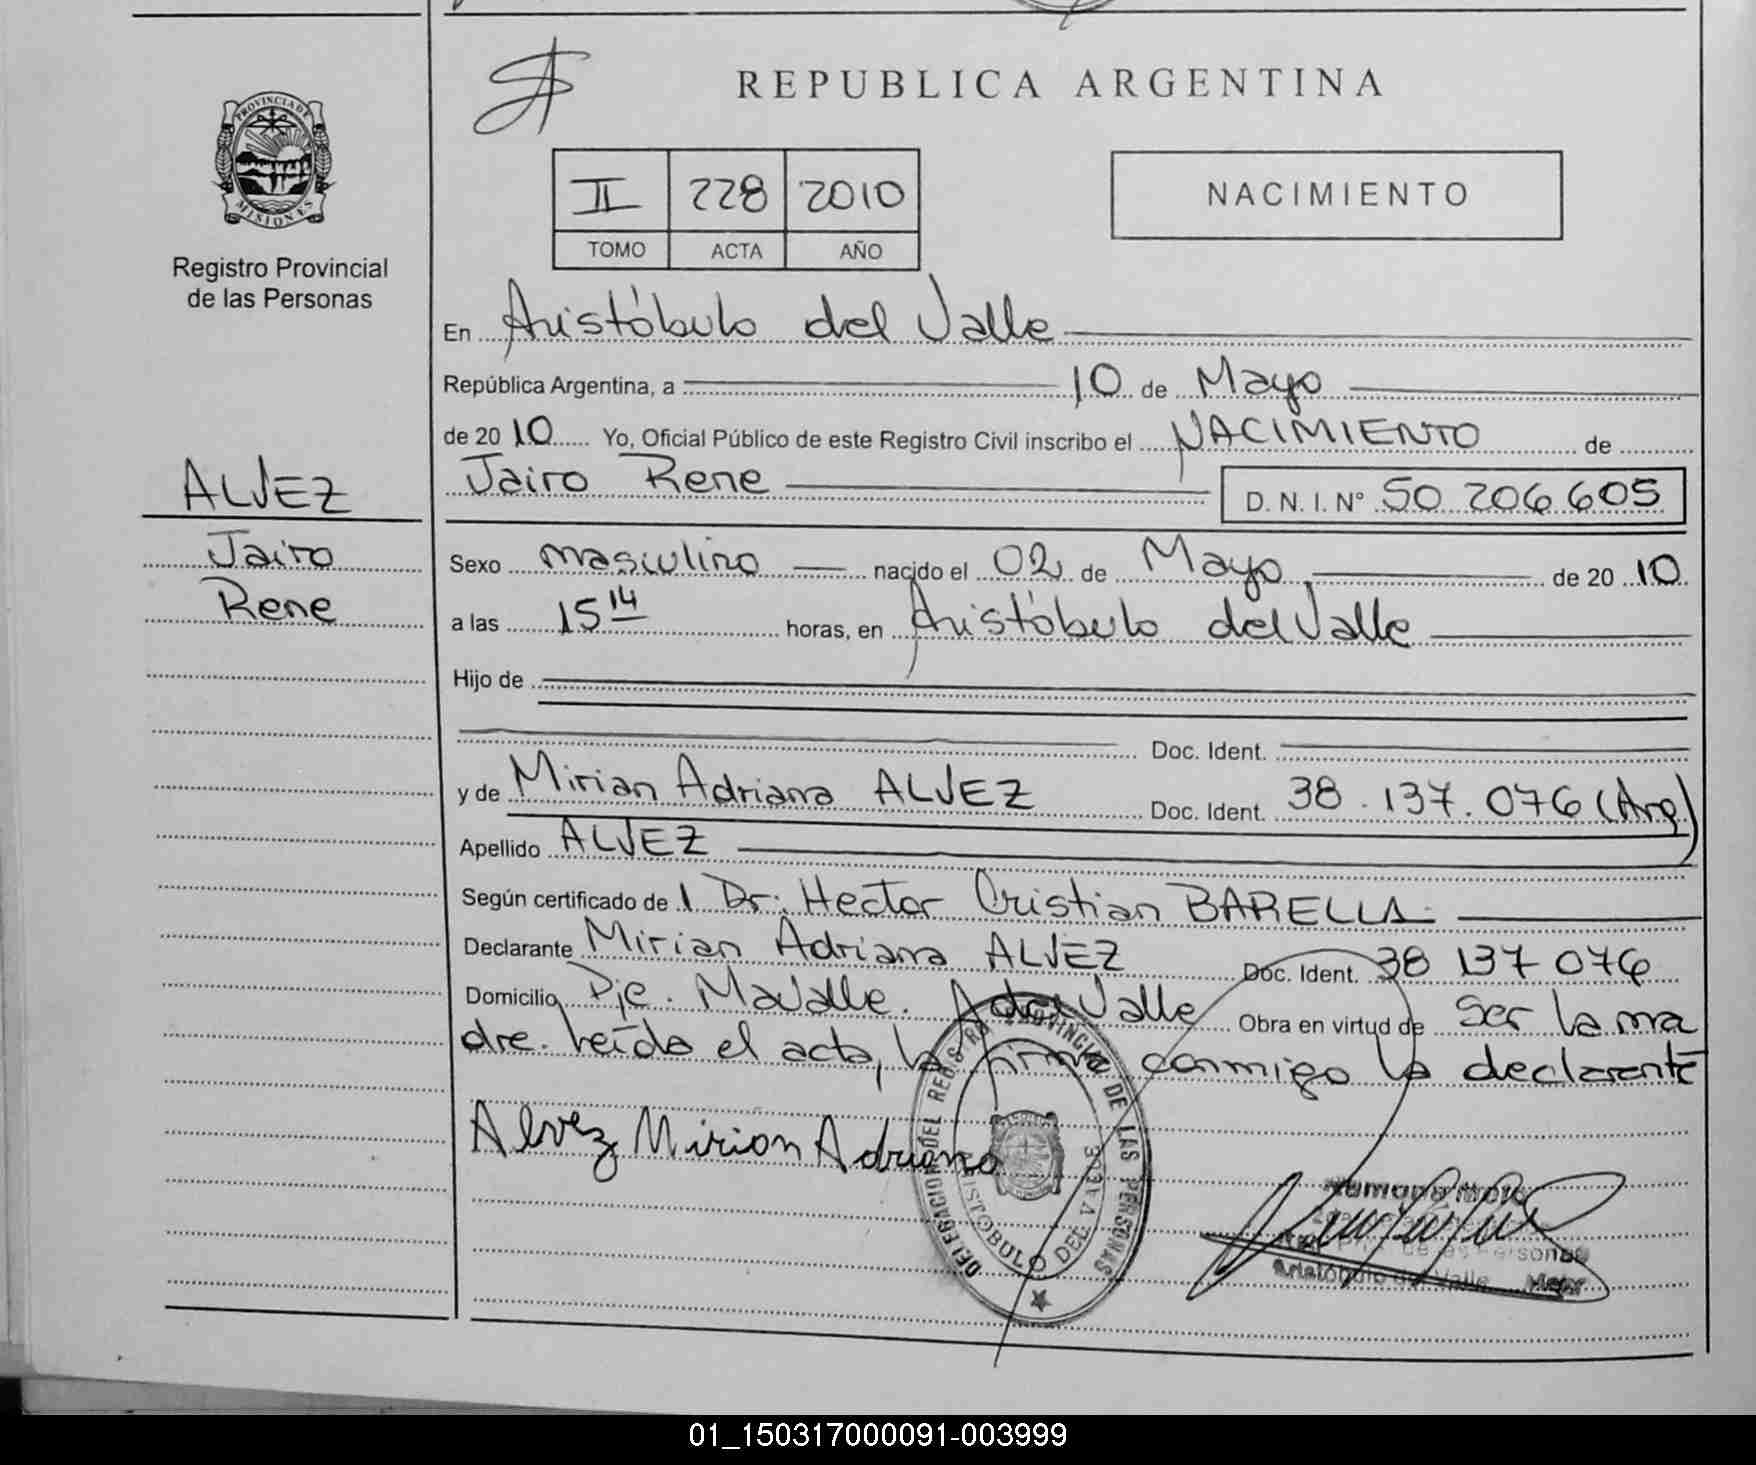 REPUBLICA ARGENTINA
PROVINCIA DE
MISIONES
Registro Provincial
de las Personas
II 228 2010
TOMO ACTA AÑO
NACIMIENTO
En Aristóbulo del Valle
República Argentina, a 10 de Mayo
de 20 10 Yo, Oficial Público de este Registro Civil inscribo el NACIMIENTO de
Jairo Rene D. N. I. N° 50 206 605
ALVEZ
Jairo
Rene
Sexo masculino nacido el 02 de Mayo de 20 10
a las 15 14 horas, en Aristóbulo del Valle
Hijo de
Doc. Ident.
y de Mirian Adriana ALVEZ Doc. Ident. 38.137.076 (Arg)
Apellido ALVEZ
Según certificado de l Dr. Hector Cristian BARELLA
Declarante Mirian Adriana ALVEZ Doc. Ident. 38 137 076
Domicilio Pje. Mavalle. A del Valle Obra en virtud de ser la ma
dre. Leída el acta, la firma conmigo la declarante
Alvez Mirian Adriana
DELEGACION DEL REG. PROVINCIAL DE LAS PERSONAS
ARISTOBULO DEL VALLE
de las Personas
Aristóbulo del Valle
01_150317000091-003999